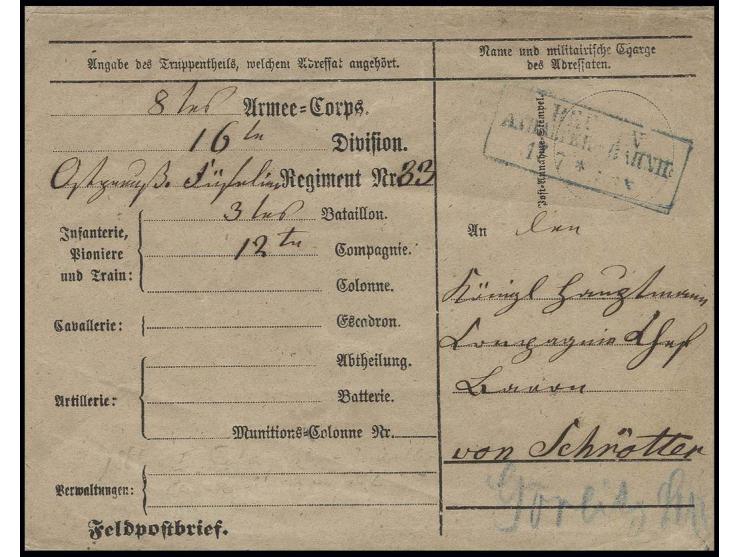 Angabe des Truppentheils, welchem Adressat angehört.
Name und militairische Charge
des Adressaten.
8tes Armee=Corps.
16te Division.
Ostpreuß. Füsilier Regiment Nr 33
3tes Bataillon.
Infanterie,
Pioniere
und Train:
12te Compagnie.
Colonne.
Cavallerie:
Escadron.
Abtheilung.
Artillerie:
Batterie.
Munitions=Colonne Nr.
Verwaltungen:
Feldpostbrief.
Post=Annahme=Stempel.
An den
Königl Hauptmann
Compagnie Chef
Baron
von Schrötter
Görlitz